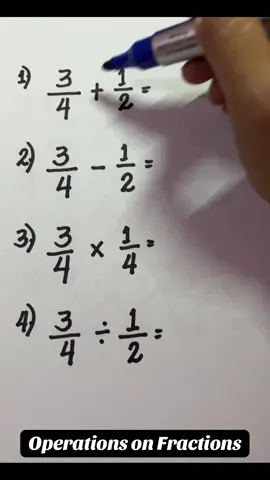 1) 3/4 + 1/2 =
2) 3/4 - 1/2 =
3) 3/4 × 1/4 =
4) 3/4 ÷ 1/2 =
Operations on Fractions